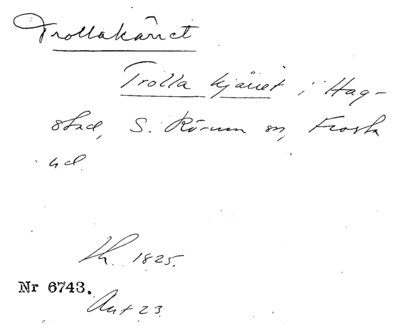 Trollakärret
Trolla kjäret i Hag-
stad, S. Rörum sn, Frosta
hd.
Lh. 1825.
Nr 6743.
Akt 23